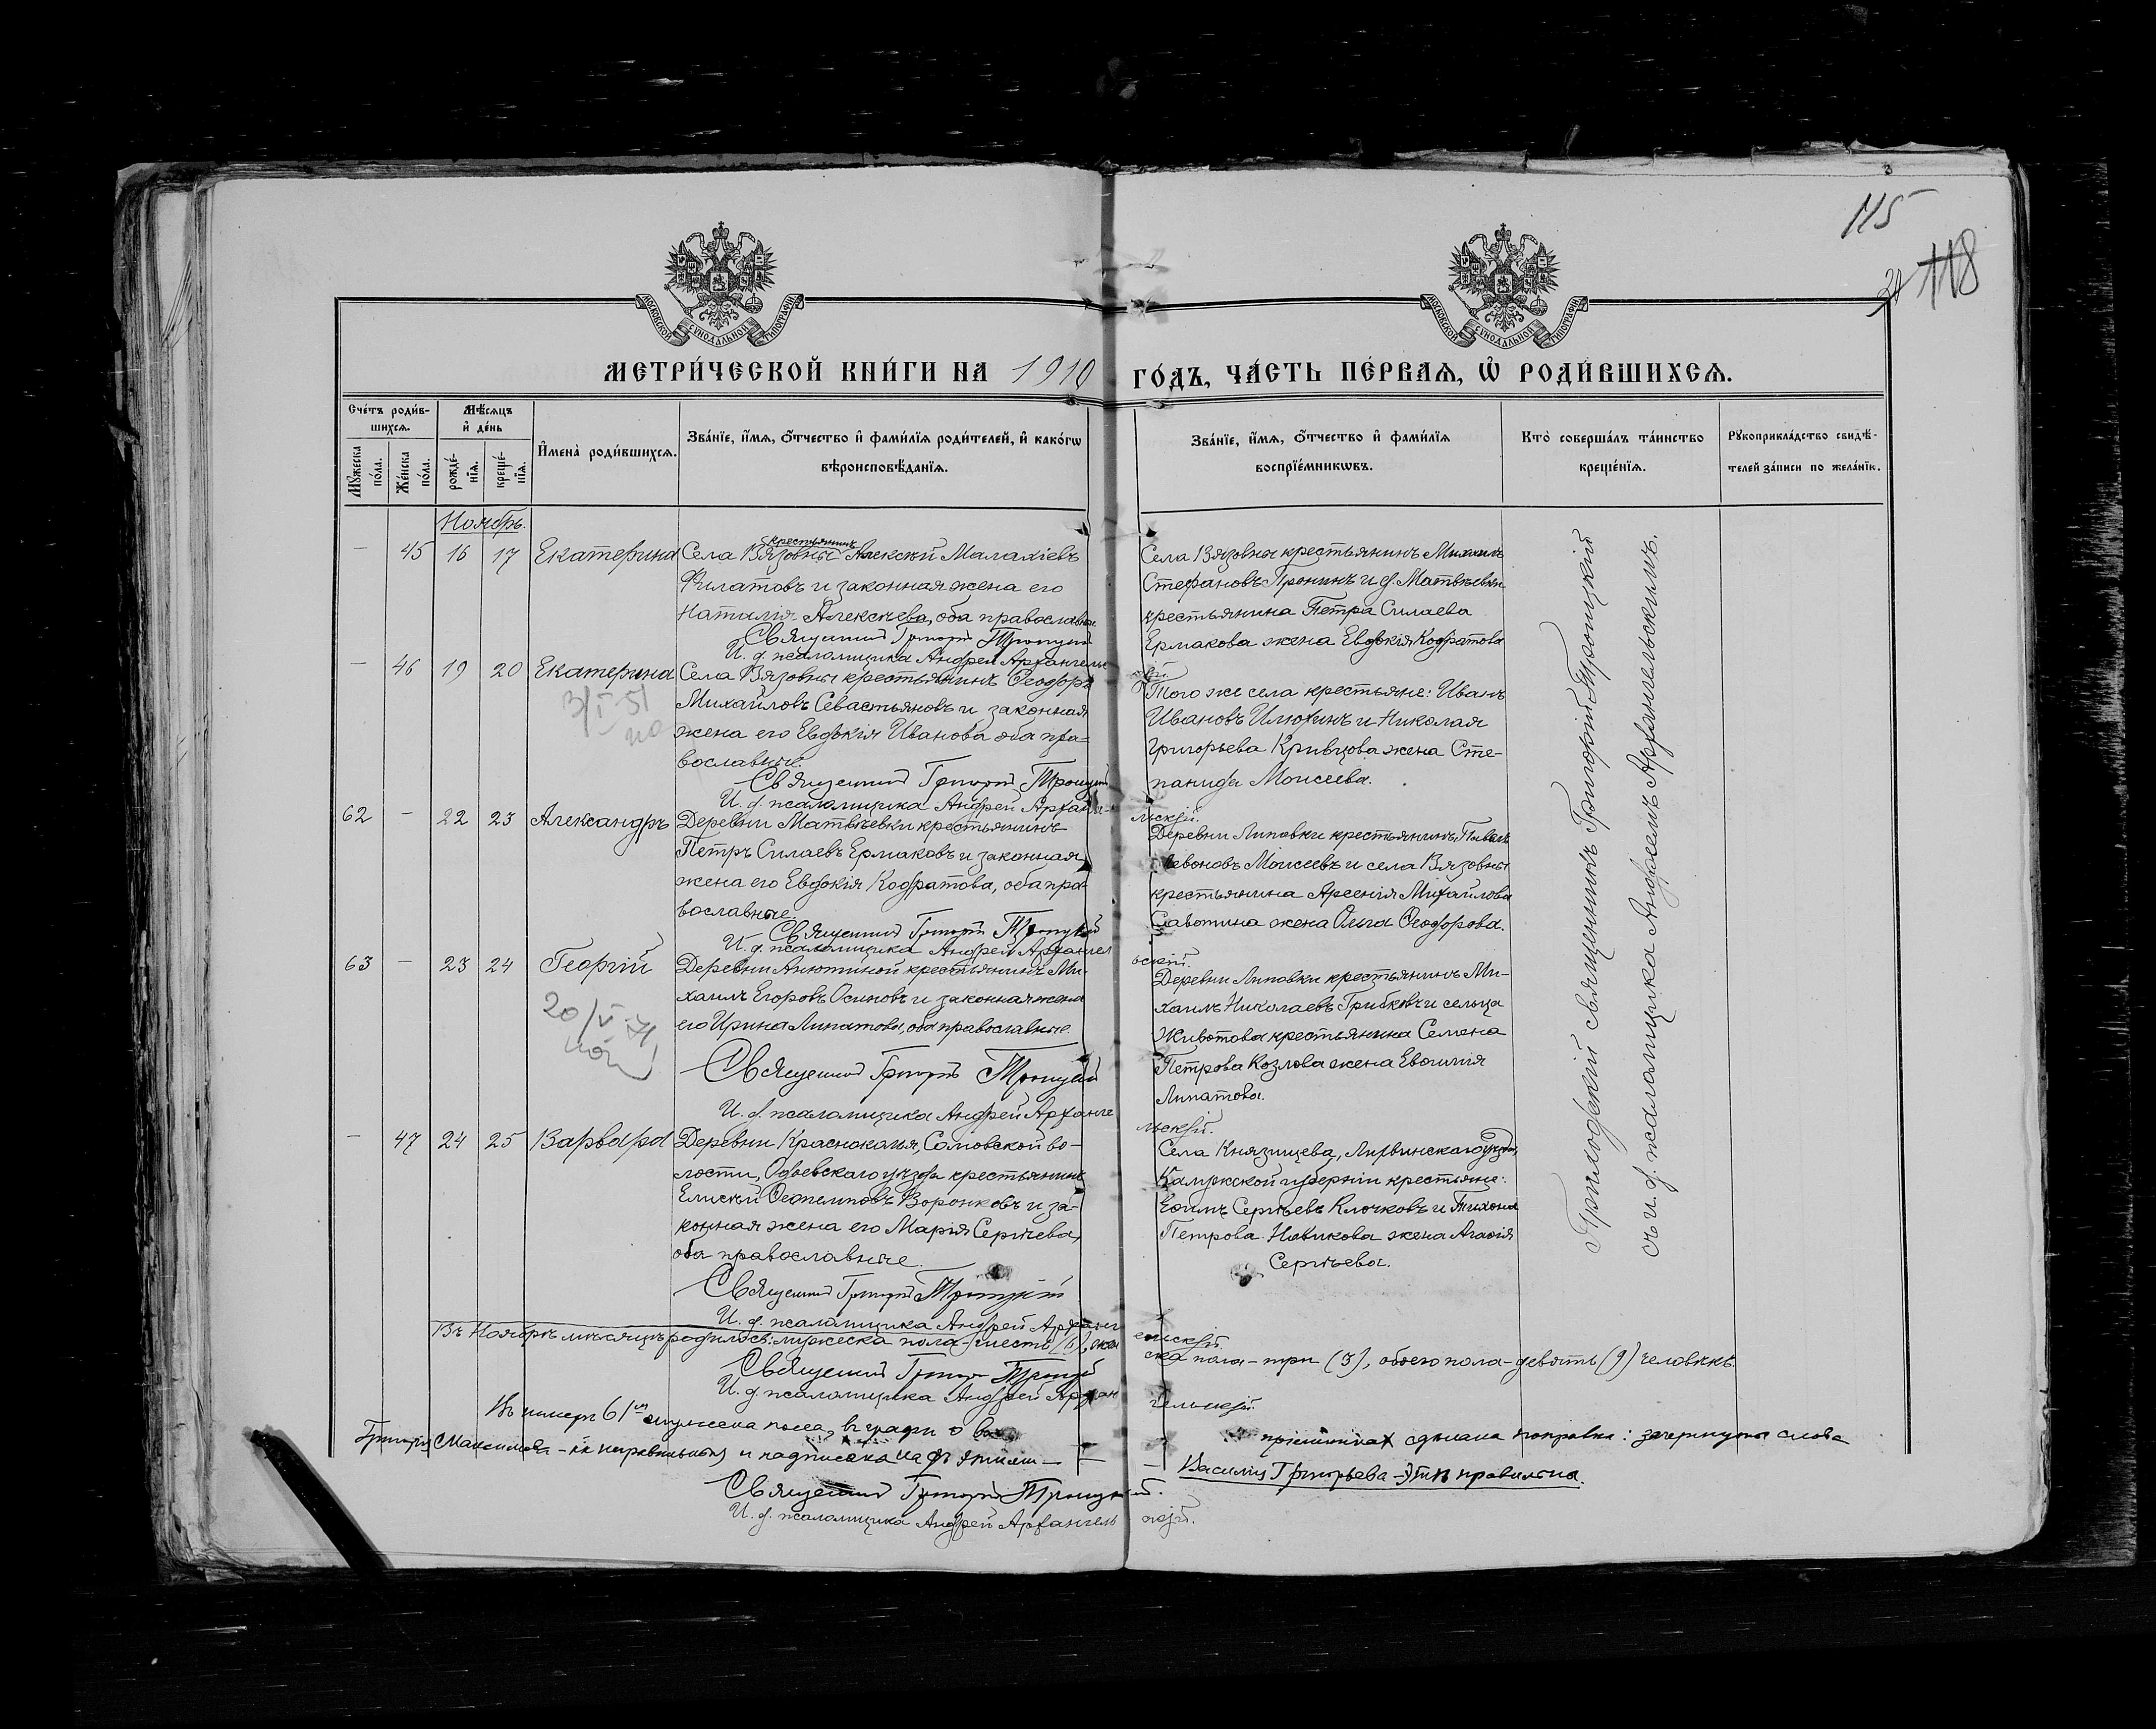 115
118
МОСКОВСКОЙ СѴНОДАЛЬНОЙ ТИПОГРАФІИ
МОСКОВСКОЙ СѴНОДАЛЬНОЙ ТИПОГРАФІИ
МЕТРИ́ЧЕСКОЙ КНИ́ГИ НА 1910 ГО́ДЪ, ЧА́СТЬ ПЕ́РВАѦ, Ѡ҆ РОДИ́ВШИХСѦ.
Сче́тъ роди́в-
шихсѧ.
Мꙋ́жеска по́ла.
Же́нска по́ла.
Мѣ́сѧцъ
и҆ де́нь
рожде́-
нїѧ.
креще́-
нїѧ.
И҆мена̀ роди́вшихсѧ.
Зва́нїе, и҆́мѧ, ѻ҆́тчество и҆ фами́лїѧ роди́телей, и҆ како́гѡ
вѣроисповѣ́данїѧ.
Зва́нїе, и҆́мѧ, ѻ҆́тчество и҆ фами́лїѧ
воспрїе́мникѡвъ.
Кто̀ соверша́лъ та́инство
креще́нїѧ.
Рꙋкоприкла́дство свидѣ́-
телей за́писи по жела́нїю.
Ноябрь.
— 45 16 17 Екатерина
крестьянинъ
Села Вязовны Алексѣй Малахіевъ
Филатовъ и законная жена его
Наталія Алексѣева, оба православные
Священникъ Григорій Троицкій
И. д. псаломщика Андрей Архангельскій.
Села Вязовны крестьянинъ Михаилъ
Стефановъ Пронинъ и д. Матвѣевки
крестьянина Петра Силаева
Ермакова жена Евдокія Кодратова
— 46 19 20 Екатерина
Села Вязовны крестьянинъ Ѳеодоръ
Михайловъ Севастьяновъ и законная
жена его Евдокія Иванова оба пра-
вославные.
Священникъ Григорій Троицкій
И. д. псаломщика Андрей Архангельскій.
Того же села крестьяне: Иванъ
Ивановъ Илюхинъ и Николая
Григорьева Кривцова жена Сте-
панида Моисеева.
62 — 22 23 Александръ
Деревни Матвѣевки крестьянинъ
Петръ Силаевъ Ермаковъ и законная
жена его Евдокія Кодратова, оба пра-
вославные.
Священникъ Григорій Троицкій
И. д. псаломщика Андрей Архангельскій.
Деревни Липовки крестьянинъ Павелъ
Левоновъ Моисеевъ и села Вязовны
крестьянина Арсенія Михайлова
Савотина жена Ольга Ѳеодорова.
63 — 23 24 Георгій
20/V
Деревни Анютиной крестьянинъ Ми-
хаилъ Егоровъ Осиповъ и законная жена
его Ирина Липатова, оба православные.
Священникъ Григорій Троицкій
И. д. псаломщика Андрей Архангельскій.
Деревни Липовки крестьянинъ Ми-
хаилъ Николаевъ Грибковъ и сельца
Животова крестьянина Семена
Петрова Козлова жена Евѳимія
Липатова.
— 47 24 25 Варвара
Деревни Красноколья, Сомовской во-
лости, Одоевскаго уѣзда крестьянинъ
Елисѣй Ѳеопемптовъ Воронковъ и за-
конная жена его Марія Сергѣева,
оба православные.
Священникъ Григорій Троицкій
И. д. псаломщика Андрей Архангельскій.
Села Князищева, Лихвинскаго уѣзда,
Калужской губерніи крестьяне:
Ефимъ Сергѣевъ Клочковъ и Тихона
Петрова Новикова жена Агаѳія
Сергѣева.
Приходскій священникъ Григорій Троицкій
съ и. д. псаломщика Андреемъ Архангельскимъ.
Въ Ноябрѣ мѣсяцѣ родилось: мужеска пола – шесть (6), женска пола – три (3), обоего пола – девять (9) человѣкъ.
Священникъ Григорій Троицкій
И. д. псаломщика Андрей Архангельскій.
Въ номерѣ 61м мужеска пола, въ графѣ о воспріемникахъ сдѣлана поправка: зачеркнуты слова
Григорія Максимова – неправильны и надписана надъ этими — Василія Григорьева – эти правильна.
Священникъ Григорій Троицкій.
И. д. псаломщика Андрей Архангельскій.